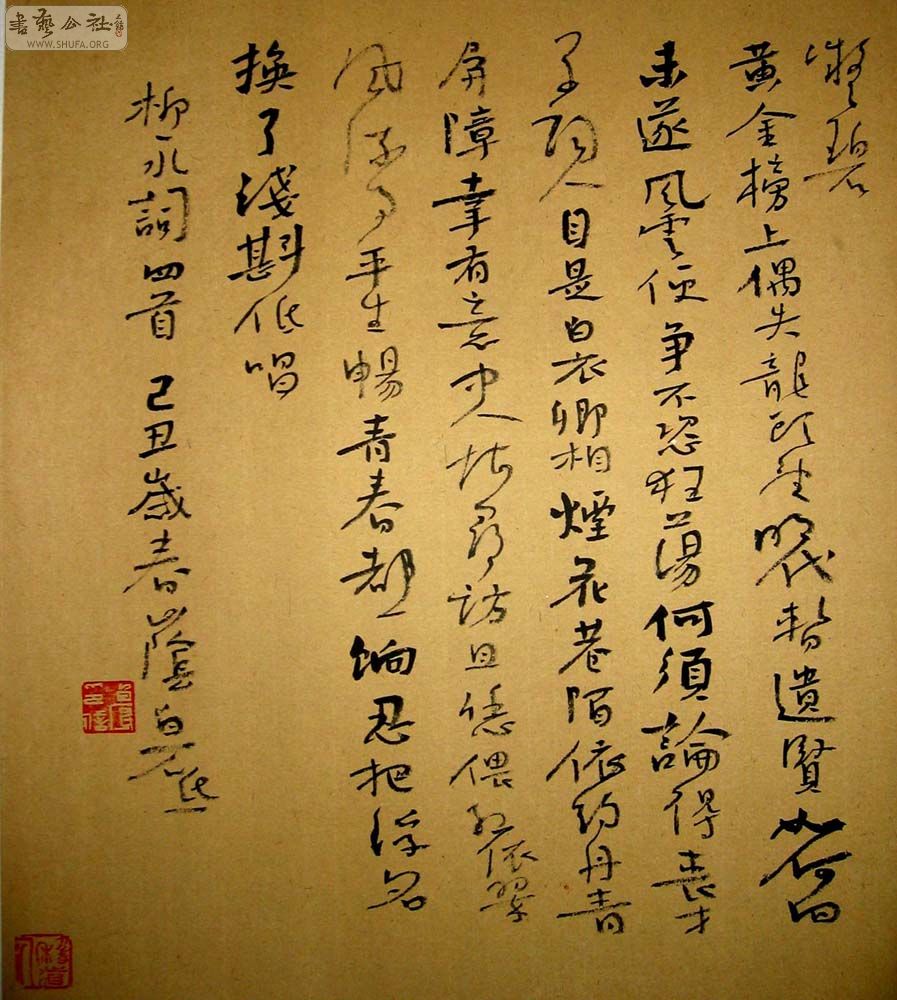 書藝公社
WWW.SHUFA.ORG
凝碧
黄金榜上偶失龍頭望明代暫遺賢如何向
未遂風雲便爭不恣狂蕩何須論得喪才
子詞人自是白衣卿相煙花巷陌依約丹青
屏障幸有意中人堪尋訪且恁偎紅依翠
風流事平生暢青春都一餉忍把浮名
換了淺斟低唱
柳永詞四首 己丑歲春